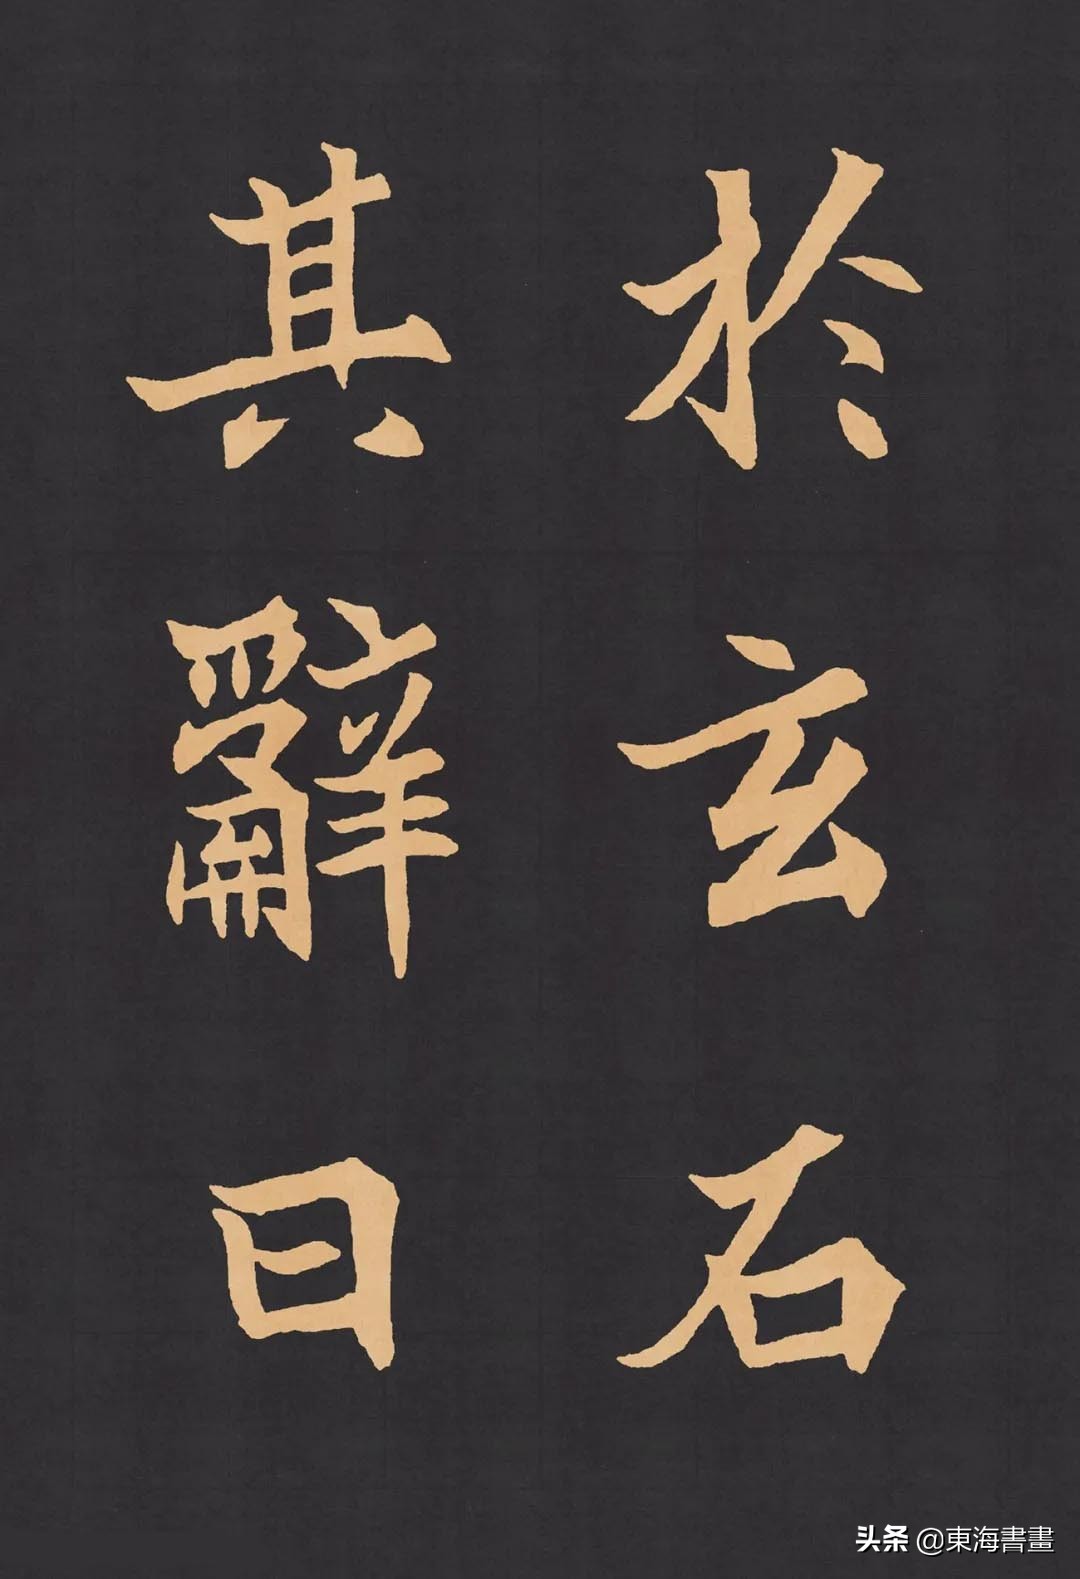 於玄石
其辭曰
头条 @東海書畫